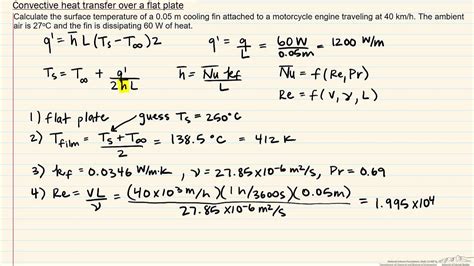 Convective heat transfer over a flat plate
Calculate the surface temperature of a 0.05 m cooling fin attached to a motorcycle engine traveling at 40 km/h. The ambient
air is 27°C and the fin is dissipating 60 W of heat.
q' = h̅ L (Ts - T∞) 2    q' = q/L = 60 W/0.05m = 1200 W/m
Ts = T∞ + q'/2h̅L    h̅ = N̅u̅ kef/L    N̅u̅ = f(Re, Pr)
Re = f(V, ν, L)
1) flat plate    guess Ts = 250°C
2) Tfilm = Ts + T∞/2 = 138.5 °C = 412 K
3) kef = 0.0346 W/m·K, ν = 27.85×10⁻⁶ m²/s, Pr = 0.69
4) Re = VL/ν = (40×10³ m/h)(1 h/3600s)(0.05m)/27.85×10⁻⁶ m²/s = 1.995×10⁴